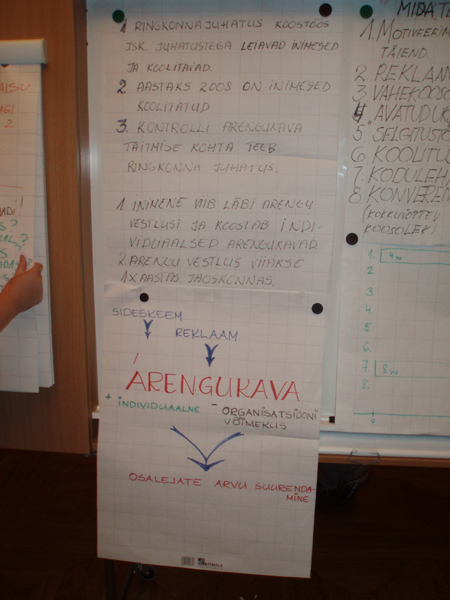 1 RINGKONNAJUHATUS KOOSTÖÖS
JSK. JUHATUSTEGA LEIAVAD INIMESED
JA KOOLITAVAD.
2 AASTAKS 2005 ON INIMESED
KOOLITATUD
3. KONTROLLI ARENGUKAVA
TÄITMISE KOHTA TEEB
RINGKONNA JUHATUS.
1 INIMENE VIIB LÄBI ARENGU
VESTLUSI JA KOOSTAB INDI-
VIDUAALSED ARENGUKAVAD
2 ARENGU VESTLUS VIIAKSE
1X AASTAS JAOSKONNAS.
SIDESKEEM
REKLAAM
ARENGUKAVA
+ INDIVIDUAALNE - ORGANISATSIOONI
VÕIMEKUS
OSALEJATE ARVU SUURENDA-
MINE
MIDA TE
1. MOTIVEERIM
TÄIEND
2 REKLAM
3 VAHEKOOS
4. AVATUD UK
5 SELGITUSTÖ
6 KOOLITU
7 KODULEH
8. KONVEREN
(KOKKUVÕTTEV
KOOSOLEK)
1. 4w
2.
3
4
5
6.
7. 8w
8.